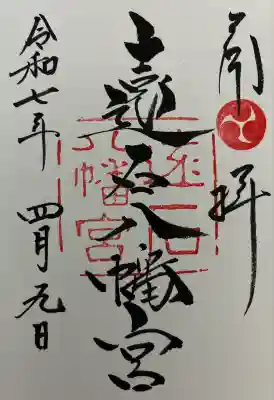 奉拝
遠石八幡宮
遠石
八幡宮
令和七年 四月元日